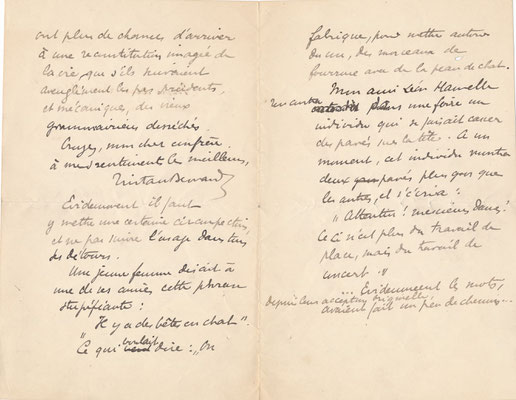 ont plus de chances d'arriver
à une reconstitution imagée de
la vie, que s'ils suivaient
aveuglément les pas précédents,
et mécaniques, des vieux
grammairiens desséchés.
Croyez, mon cher confrère
à mes sentiments les meilleurs,
Tristan Bernard
Evidemment il faut
y mettre une certaine circonspection,
et ne pas suivre l'usage dans tous
ses détours.
Une jeune femme disait à
une de ses amies, cette phrase
stupéfiante :
"Il y a des bêtes en chat".
Ce qui voulait dire : "On
fabrique, pour mettre autour
du cou, des morceaux de
fourrure avec de la peau de chat.
Mon ami Léon
rencontra dans une foire un
individu qui se faisait casser
des pavés sur la tête. A un
moment, cet individu montra
deux pavés, plus gros que
les autres, et s'écria :
"Attention ! messieurs Dames !
Ceci n'est plus du travail de
place, mais du travail de
concert."
... Evidemment les mots,
depuis leur acception originelle,
avaient fait un peu de chemin...